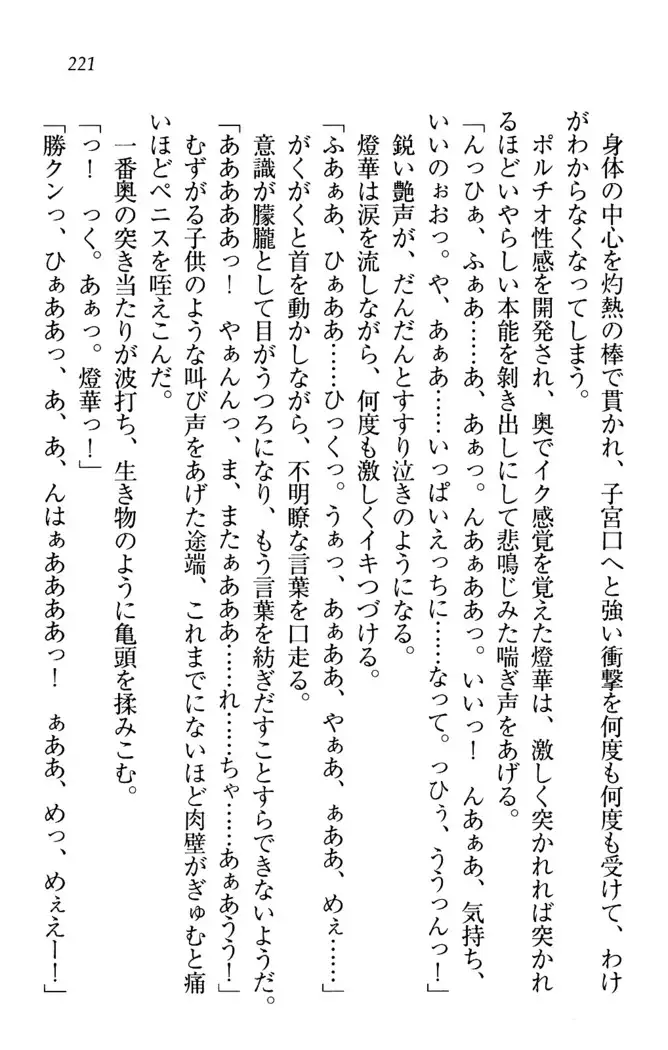 221
身体の中心を灼熱の棒で貫かれ、子宮口へと強い衝撃を何度も何度も受けて、わけ
がわからなくなってしまう。
ポルチオ性感を開発され、奥でイク感覚を覚えた燈華は、激しく突かれれば突かれ
るほどいやらしい本能を剝き出しにして悲鳴じみた喘ぎ声をあげる。
「んっひぁ、ふぁあ……あ、あぁっ。んあぁああっ。いいっ! んあぁあ、気持ち、
いいのぉおっ。や、あぁあ……いっぱいえっちに……なって。っひぅ、ううっんっ!」
鋭い艶声が、だんだんとすすり泣きのようになる。
燈華は涙を流しながら、何度も激しくイキつづける。
「ふあぁあ、ひぁああ……ひっくっ。うぁっ、あぁああ、やぁあ、ぁああ、めぇ……」
がくがくと首を動かしながら、不明瞭な言葉を口走る。
意識が朦朧として目がうつろになり、もう言葉を紡ぎだすことすらできないようだ。
「あああああっ! やぁんんっ、ま、またぁあああ……れ……ちゃ……あぁあうう!」
むずがる子供のような叫び声をあげた途端、これまでにないほど肉壁がぎゅむと痛
いほどペニスを咥えこんだ。
一番奥の突き当たりが波打ち、生き物のように亀頭を揉みこむ。
「っ! っく。あぁっ。燈華っ!」
「勝クンっ、ひぁああっ、あ、あ、んはぁあああああっ! ぁああ、めっ、めぇえー!」